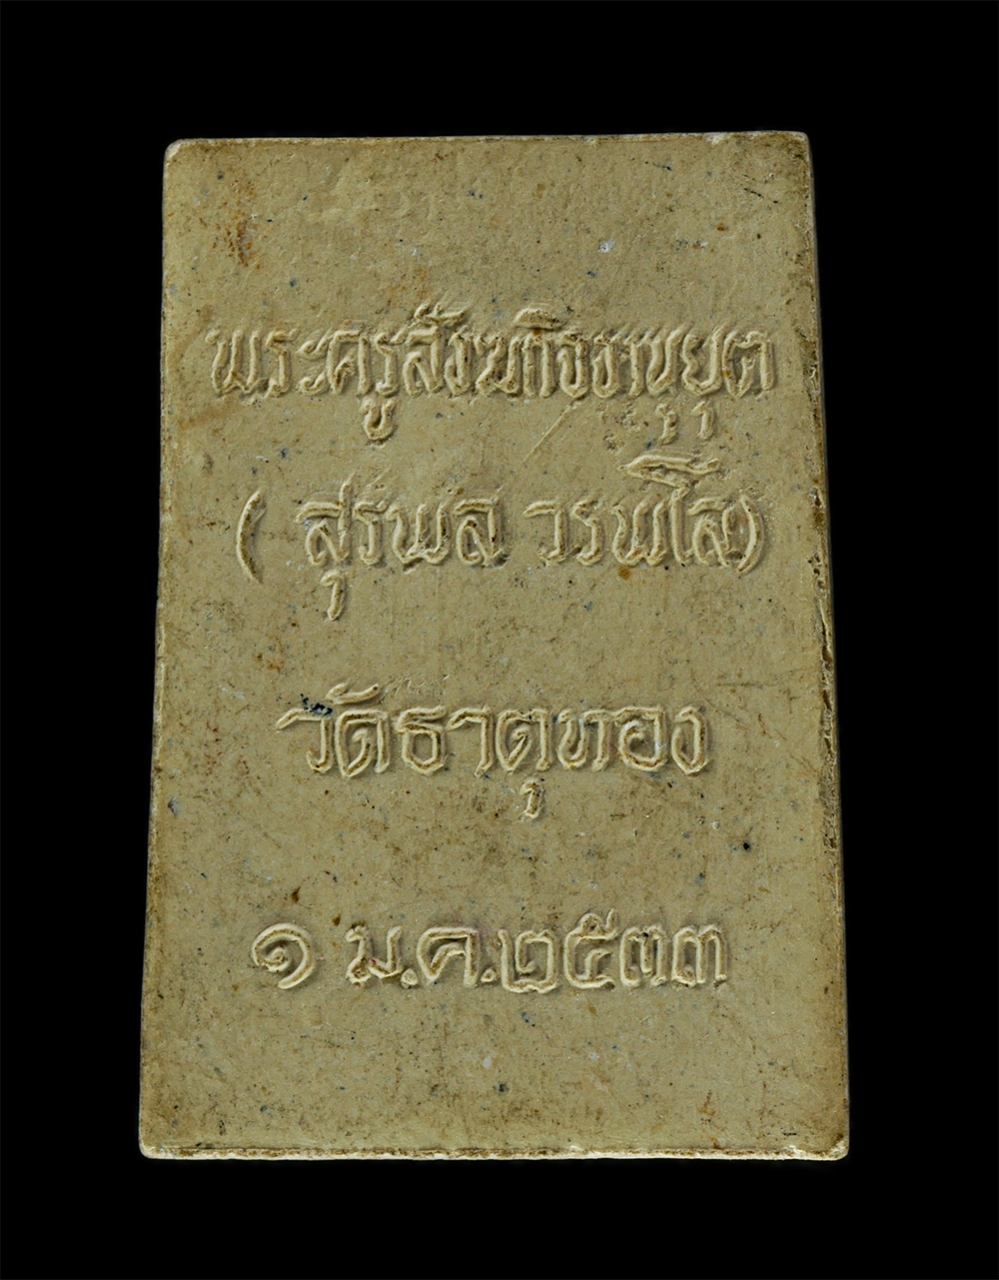 พระครูสังฆกิจจานุยุต
( สุรพล วรพโล)
วัดธาตุทอง
๑ ม.ค.๒๕๓๓